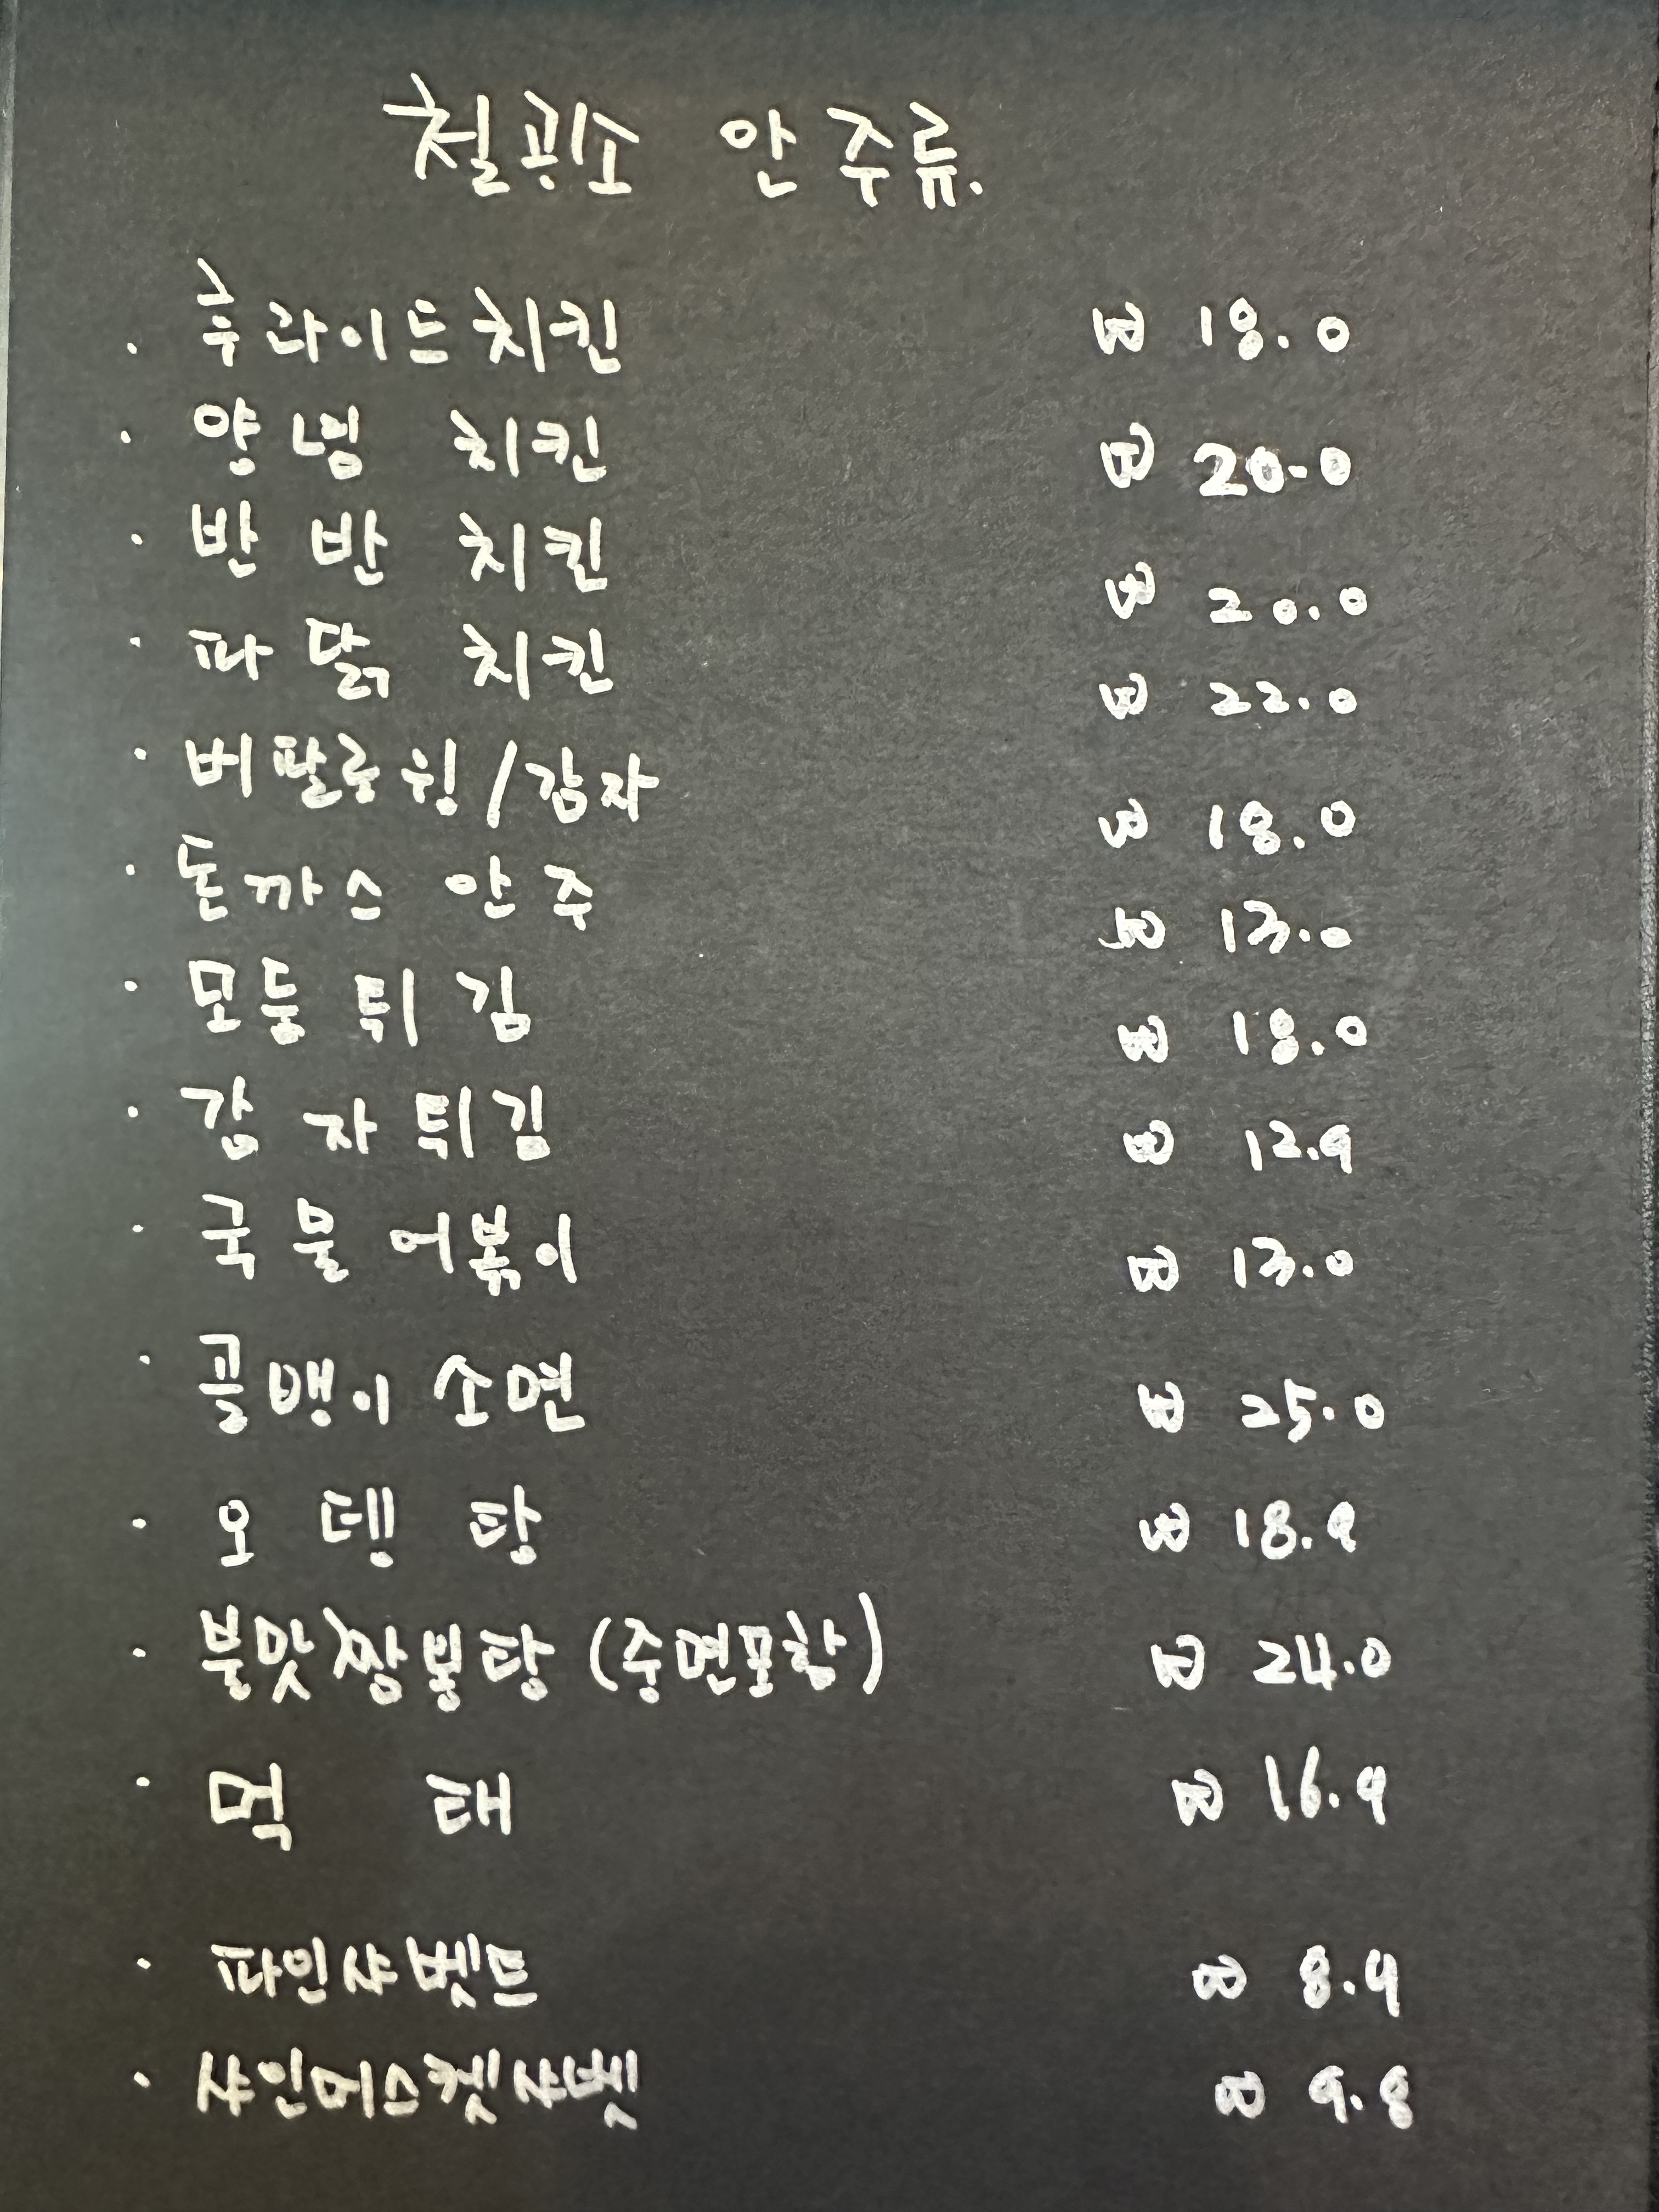 철광소 안주류.
· 후라이드치킨 ₩ 18.0
· 양념 치킨 ₩ 20.0
· 반반 치킨 ₩ 20.0
· 파닭 치킨 ₩ 22.0
· 버팔로윙/감자 ₩ 18.0
· 돈까스 안주 ₩ 13.0
· 모듬튀김 ₩ 18.0
· 감자튀김 ₩ 12.9
· 국물어볶이 ₩ 13.0
· 골뱅이 소면 ₩ 25.0
· 오뎅탕 ₩ 18.9
· 불맛짬뽕탕 (중면포함) ₩ 24.0
· 먹태 ₩ 16.9
· 파인샤벳트 ₩ 8.9
· 샤인머스켓샤벳 ₩ 9.8